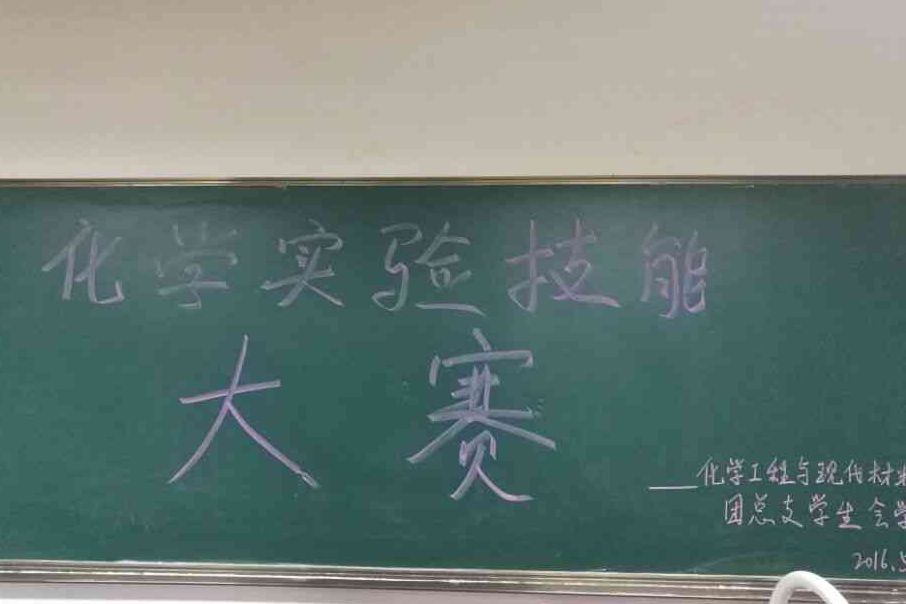 化学实验技能
大赛
——化学工程与现代材料
团总支学生会学
2016.5